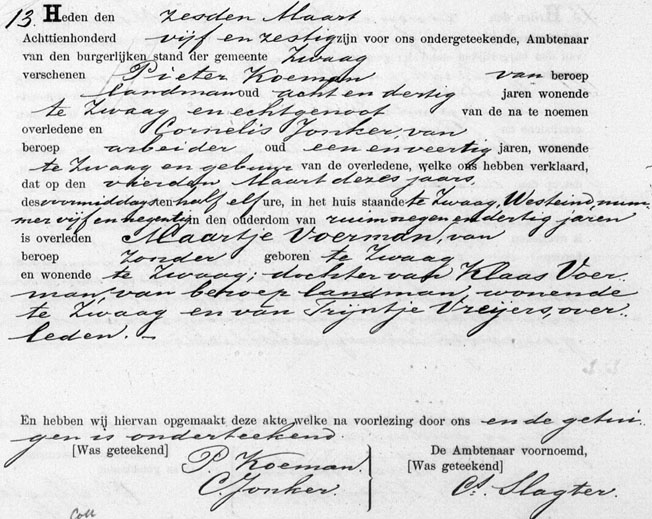 13. Heden den zesden Maart
Achttienhonderd vijf en zestig zijn voor ons ondergeteekende, Ambtenaar
van den burgerlijken stand der gemeente Zwaag
verschenen Pieter Koeman van beroep
landman oud acht en dertig jaren wonende
te Zwaag en echtgenoot van de na te noemen
overledene en Cornelis Jonker, van
beroep arbeider oud een en veertig jaren, wonende
te Zwaag en gebuur van de overledene, welke ons hebben verklaard,
dat op den vierden Maart dezes jaars,
des voormiddags ten half elf ure, in het huis staande te Zwaag, Westeind num-
mer vijf en negentig in den ouderdom van ruim negen en dertig jaren
is overleden Maartje Voerman, van
beroep zonder geboren te Zwaag
en wonende te Zwaag; dochter van Klaas Voer-
man, van beroep landman, wonende
te Zwaag en van Trijntje Vreijers, over-
leden. —
En hebben wij hiervan opgemaakt deze akte welke na voorlezing door ons en de getui-
gen is onderteekend.
[Was geteekend] De Ambtenaar voornoemd,
P. Koeman. [Was geteekend]
C. Jonker. Cs. Slagter.